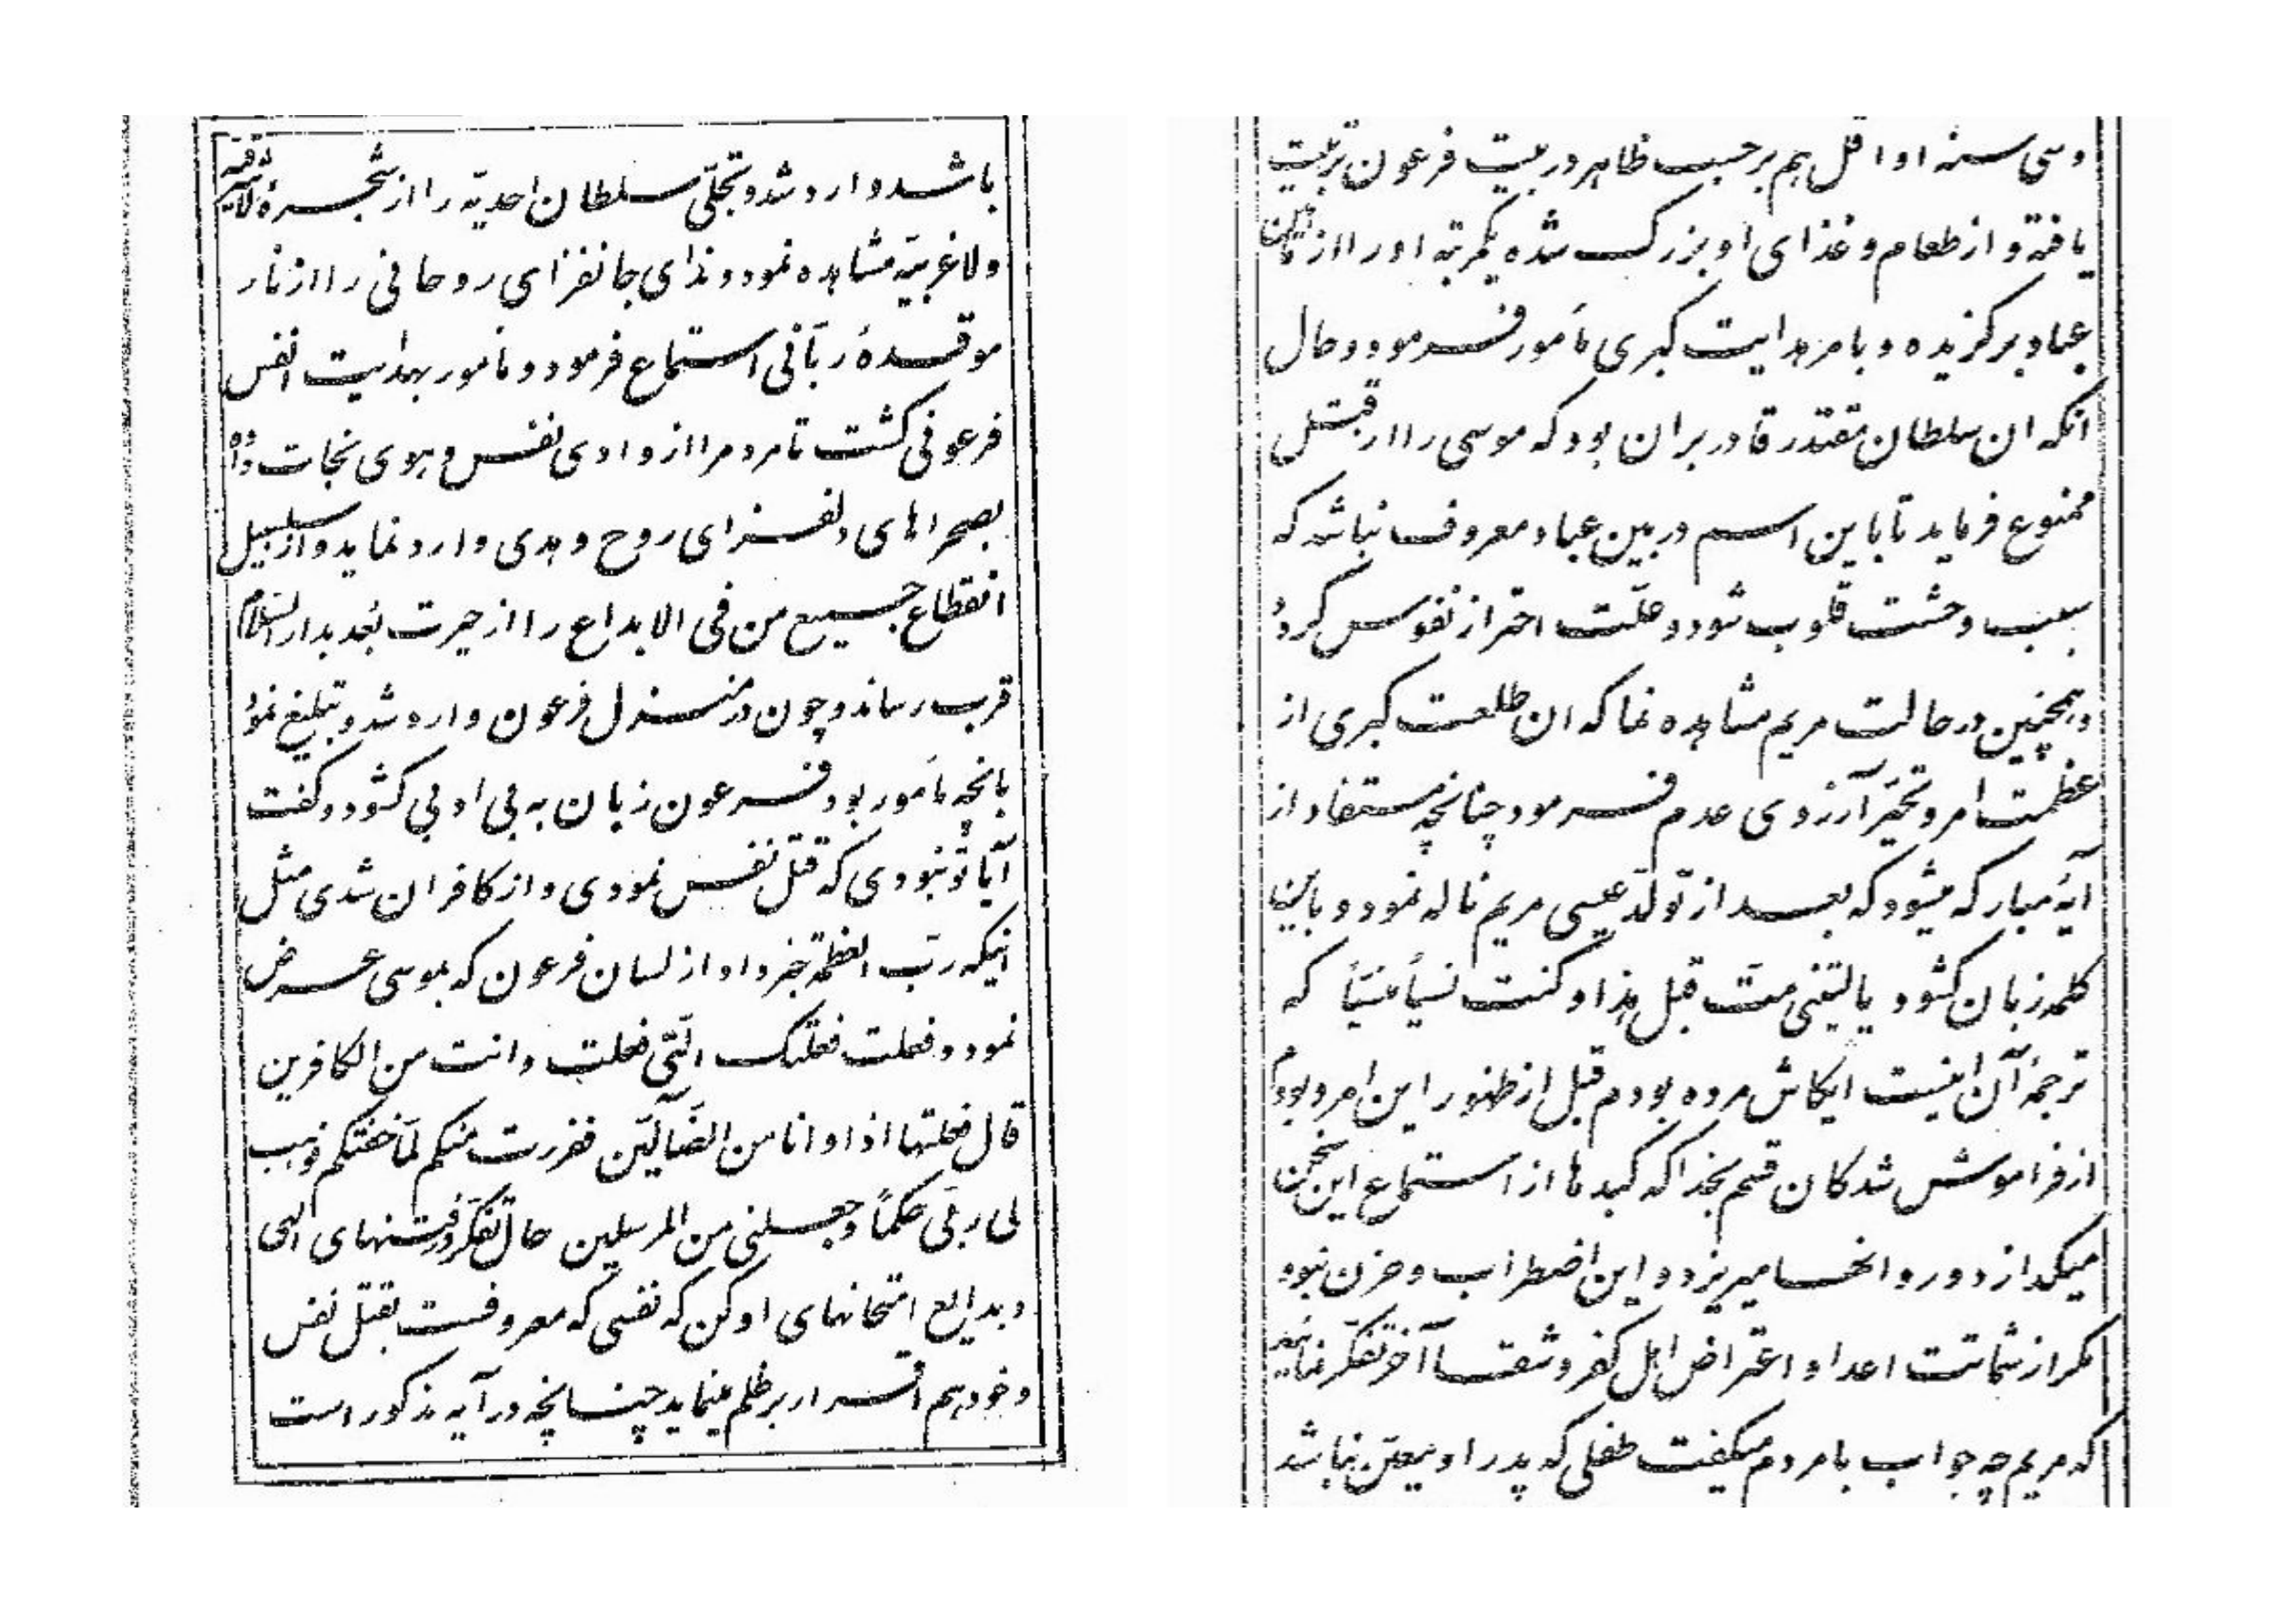 باشد وارد شد و تجلّی سلطان احدیّه را از شجرهٔ لا شرقیّه
و لا غربیّه مشاهده نمود و ندای جانفزای روحانی را از نار
موقدهٔ ربّانی استماع فرمود و مامور بهدایت انفس
فرعونی گشت تا مردم را از وادی نفس و هوی نجات داده
بصحراهای دلفزای روح و هدی وارد نماید و از سلسبیل
انقطاع جمیع من فی الابداع را از حیرت بُعد بدار السّلام
قرب رساند و چون در منزل فرعون وارد شد و تبلیغ نمود
بانچه مأمور بود فرعون زبان به بی ادبی گشود و گفت
آیا تو نبودی که قتل نفس نمودی و از کافران شدی مثل
اینکه ربّ العظمة خبر داد از لسان فرعون که بموسی عرض
نمود و فعلت فعلتک الّتی فعلت و انت من الکافرین
قال فعلتها اذا و انا من الضّآلّین ففررت منکم لمّا خفتکم فوهب
لی ربّی حکماً و جعلنی من المرسلین حال تفکّر در فتنهای الهی
و بدایع امتحانهای او کن که نفسی که معروفست بقتل نفس
و خود هم اقرار بر ظلم مینماید چنانچه در آیه مذکور است
و سی سنه او اقل هم بر حسب ظاهر در بیت فرعون تربیت
یافته و از طعام و غذای او بزرگ شده یکمرتبه او را از مابین
عباد برگزیده و بامر هدایت کبری مأمور فرمود و حال
انکه ان سلطان مقتدر قادر بر ان بود که موسی را از قتل
ممنوع فرماید تا باین اسم در بین عباد معروف نباشد که
سبب وحشت قلوب شود و علّت احتراز نفوس گردد
و همچنین در حالت مریم مشاهده نما که ان طلعت کبری از
عظمت امر و تحیّر آرزوی عدم فرمود چنانچه مستفاد از
آیهٔ مبارکه میشود که بعد از تولّد عیسی مریم ناله نمود و باین
کلمه زبان گشود یا لیتنی متّ قبل هذا و کنت نسیاً منسیّاً که
ترجمهٔ آن اینست ایکاش مرده بودم قبل از ظهور این امر و بودم
از فراموش شدگان قسم بخدا که کبدها از استماع این سخن
میگدازد و روانها میریزد و این اضطراب و حزن نبود
مگر از شماتت اعدا و اعتراض اهل کفر و شقا آخر تفکّر نمائید
که مریم چه جواب با مردم میگفت طفلی که پدر او معیّن نباشد